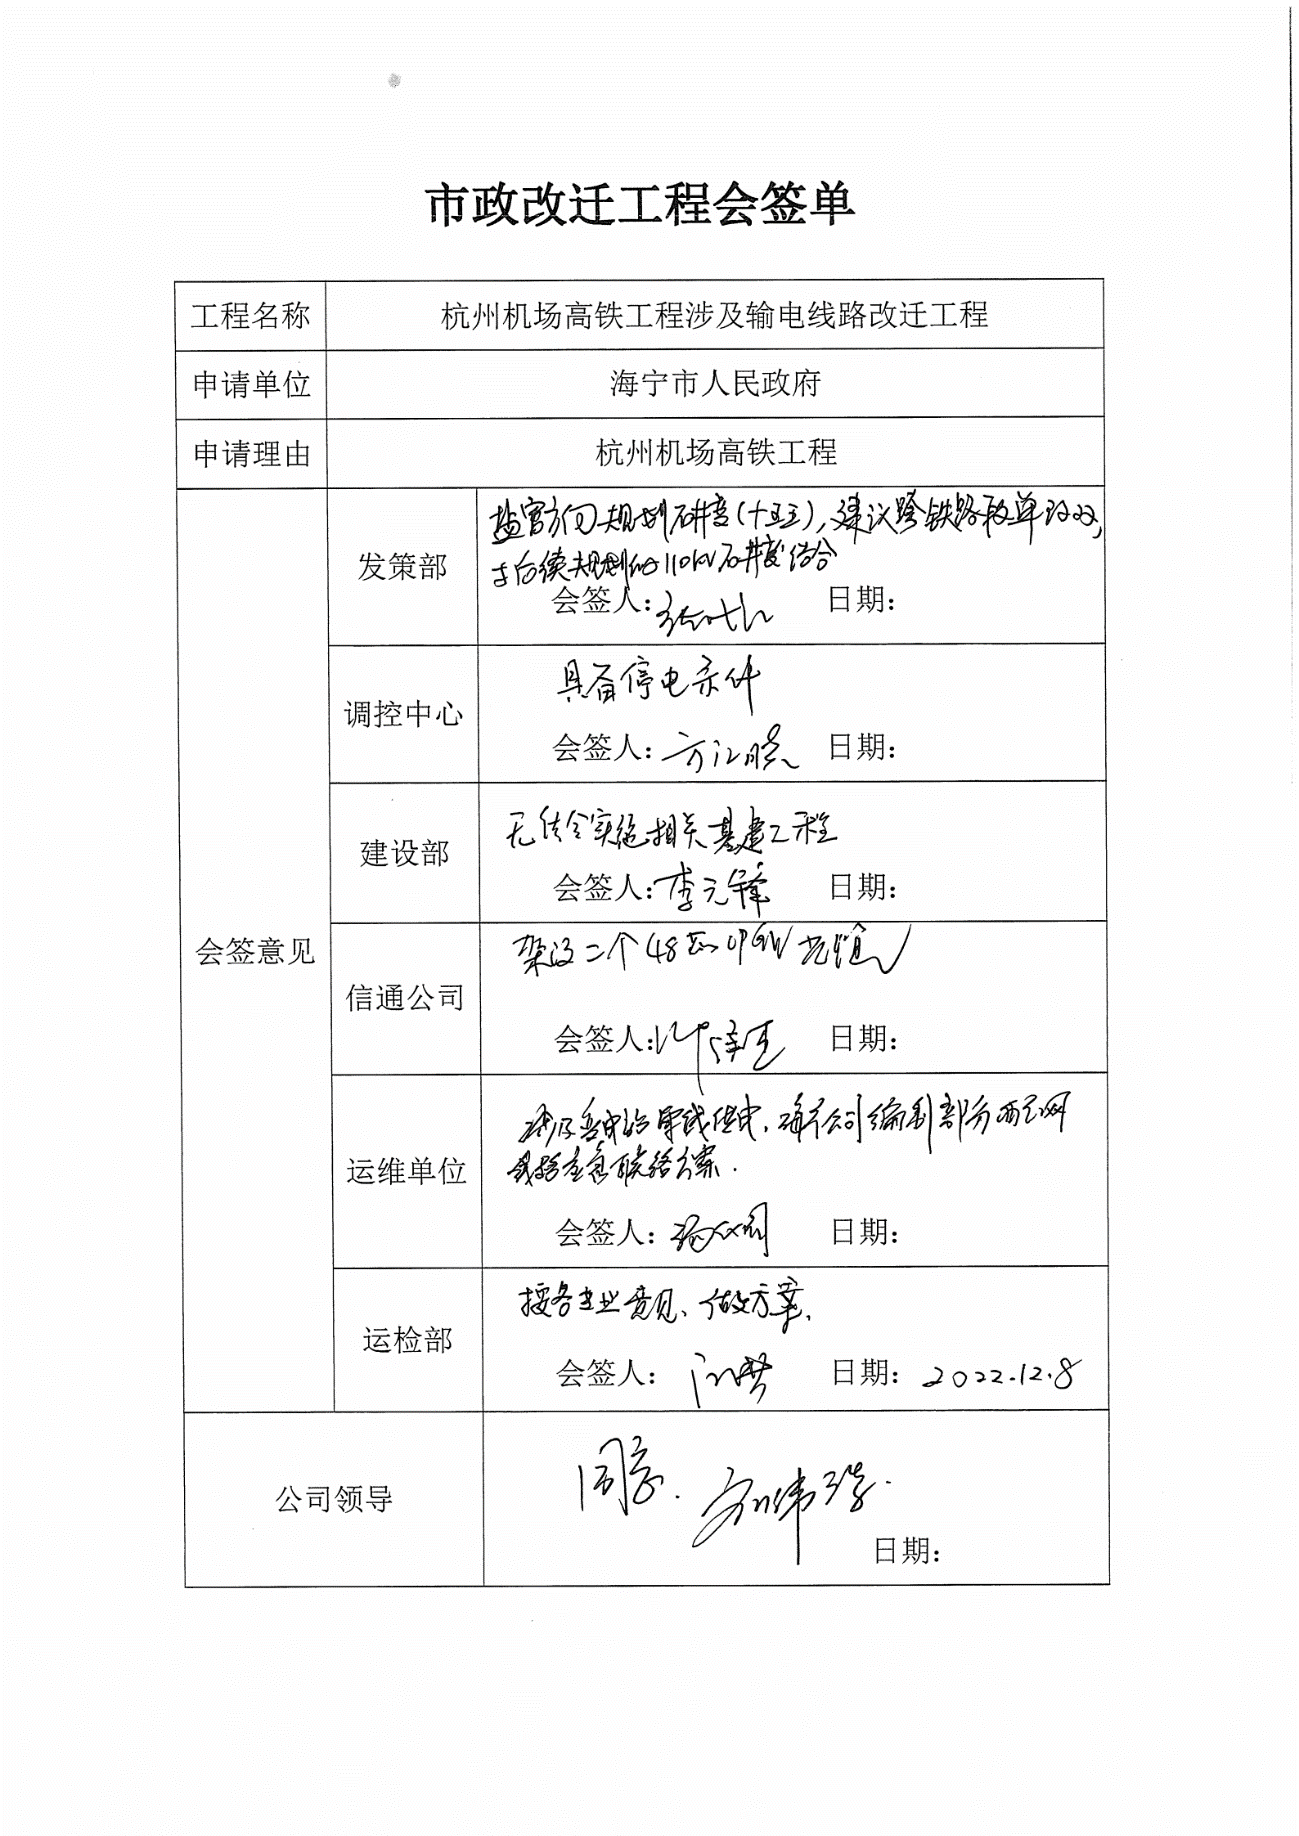 市政改迁工程会签单
工程名称 杭州机场高铁工程涉及输电线路改迁工程
申请单位 海宁市人民政府
申请理由 杭州机场高铁工程
会签意见
发策部
盐官方向规划研变(十五五),建议跨铁路段单改双,
与后续规划的110kV
结合
会签人: 日期:
调控中心
具备停电条件
会签人:方江晓 日期:
建设部
无结合实施相关基建工程
会签人:李元锋 日期:
信通公司
架设二个48芯OPGW光缆
会签人: 日期:
运维单位
涉及 单线供电,海宁公司编制部分配网
联络方案.
会签人: 日期:
运检部
按各专业意见、做方案,
会签人: 日期:2022.12.8
公司领导
同意.
日期: